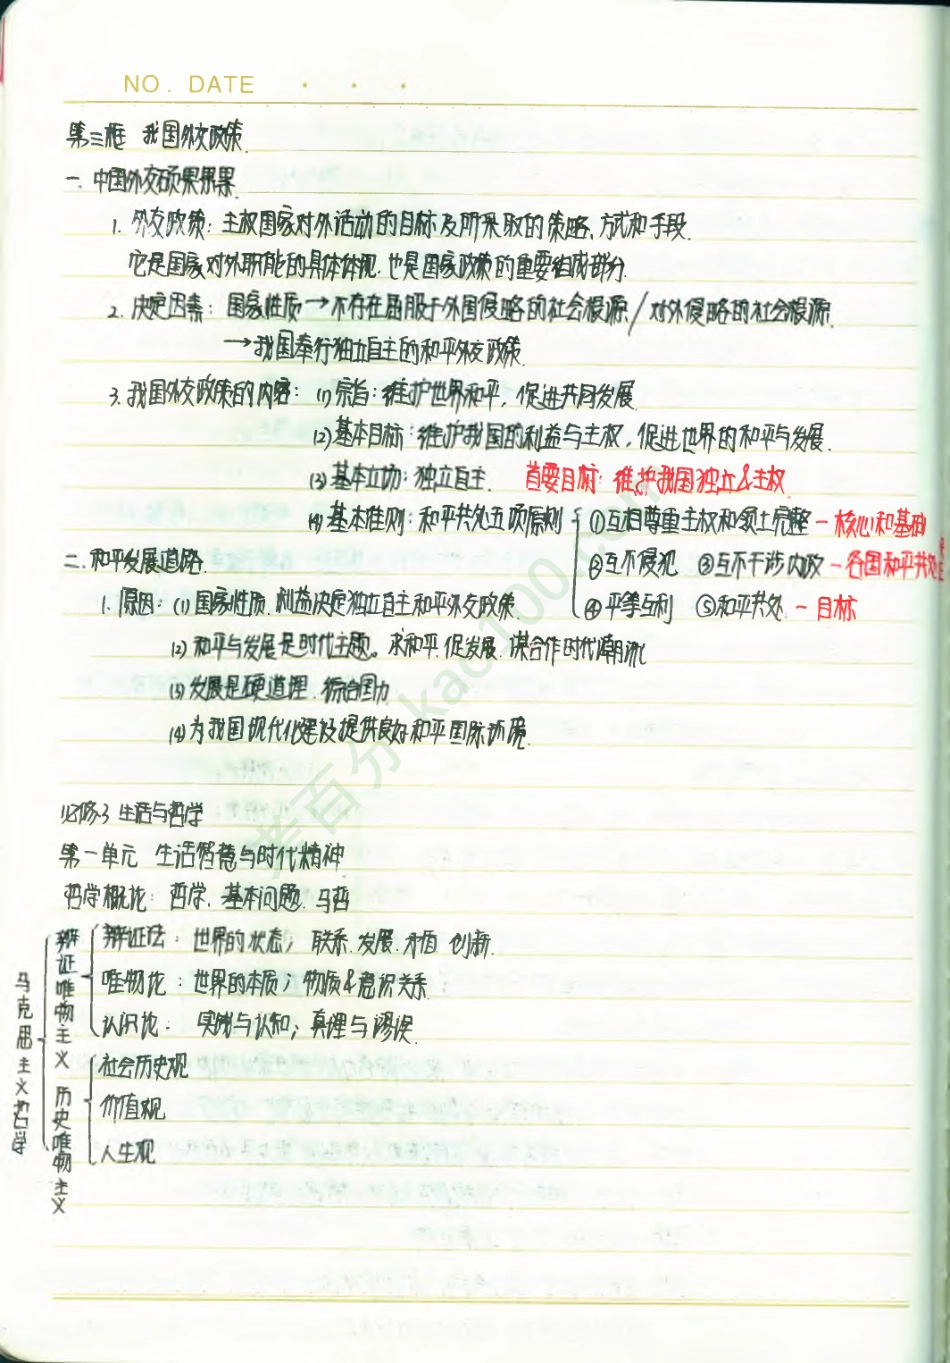 NO. DATE
第三框 我国外交政策
一. 中国外交硕果累累
1. 外交政策: 主权国家对外活动的目标及所采取的策略、方式和手段.
它是国家对外职能的具体体现. 也是国家政策的重要组成部分.
2. 决定因素: 国家性质→不存在屈服于外国侵略的社会根源/对外侵略的社会根源.
→我国奉行独立自主的和平外交政策.
3. 我国外交政策的内容: (1)宗旨: 维护世界和平, 促进共同发展
(2)基本目标: 维护我国的利益与主权, 促进世界的和平与发展.
(3)基本立场: 独立自主. 首要目标: 维护我国独立&主权
(4)基本准则: 和平共处五项原则 ①互相尊重主权和领土完整 - 核心和基础
②互不侵犯 ③互不干涉内政 - 各国和平共处
④平等互利 ⑤和平共处. - 目标
二. 和平发展道路.
1. 原因: (1)国家性质. 利益决定独立自主和平外交政策.
(2)和平与发展是时代主题。求和平. 促发展. 谋合作时代潮流
(3)发展是硬道理. 综合国力
(4)为我国现代化建设提供良好和平国际环境.
考百分 kao100.com
必修3 生活与哲学
第一单元 生活智慧与时代精神
哲学概论: 哲学. 基本问题. 马哲
马克思主义哲学
辩证唯物主义
辩证法: 世界的状态; 联系. 发展. 矛盾 创新.
唯物论: 世界的本质; 物质&意识关系.
认识论: 实践与认知; 真理与谬误.
历史唯物主义
社会历史观
价值观
人生观